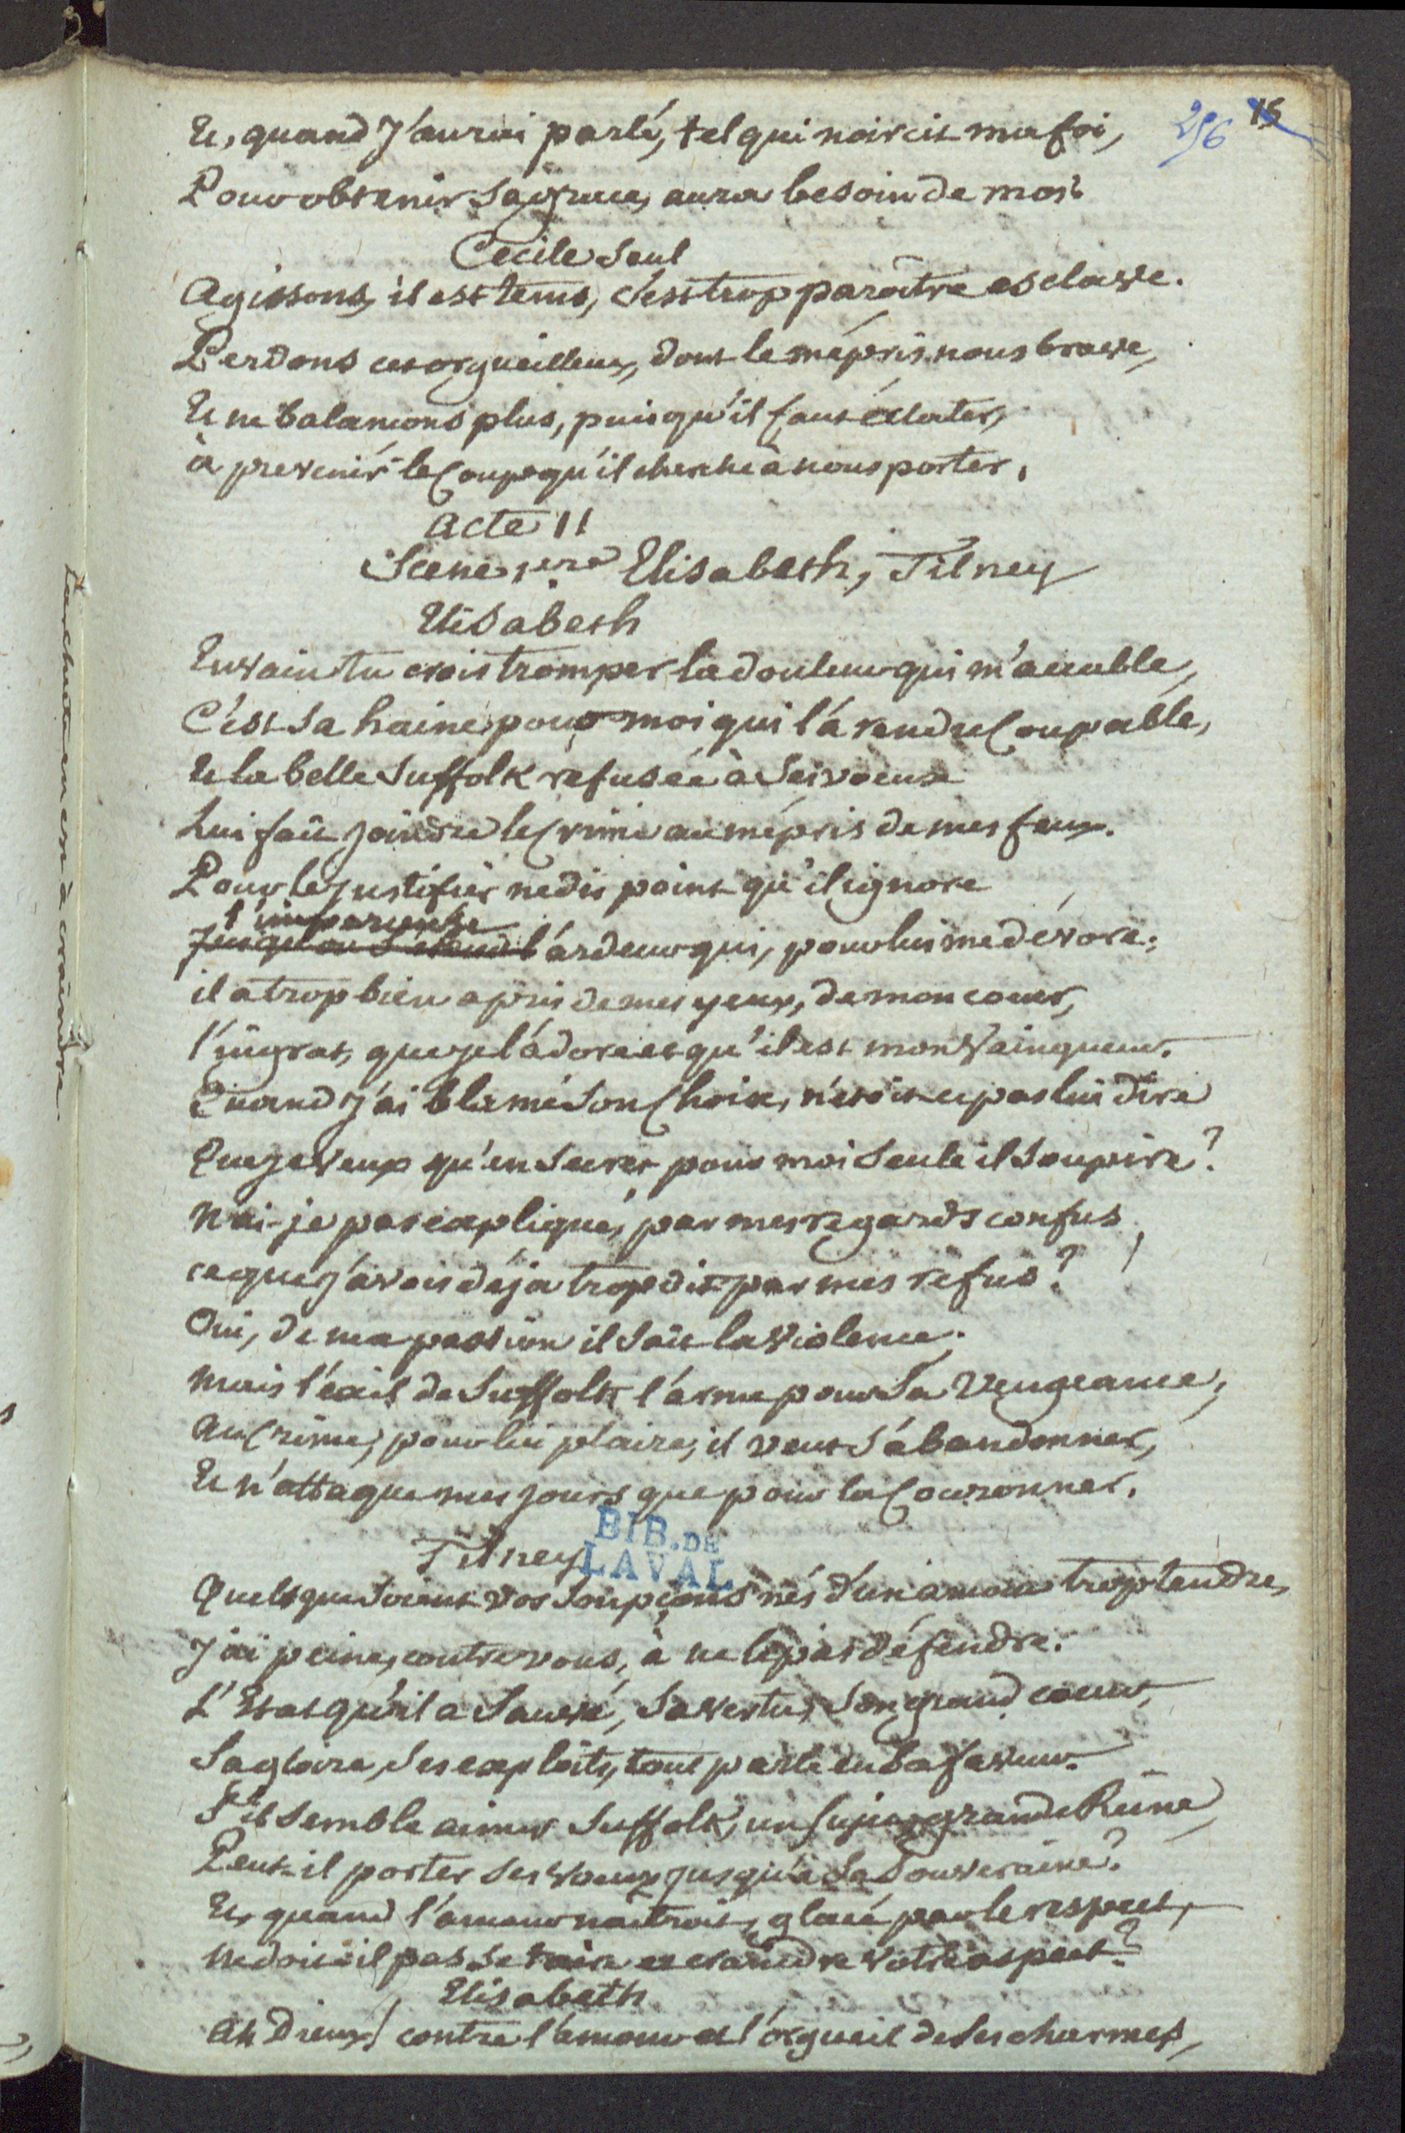 15
256
Et, quand J'aurai parlé, tel qui noircit ma foi,
Pour obtenir sa grace, aura besoin de moi.
Cecile seul
Agissons, il est tems, c'est trop paroître esclave.
Perdons cet orgueilleux, dont le mépris nous brave,
Et ne balancons plus, puisqu'il faut éclater,
à prevenir le Coup qu'il cherche à nous porter.
Acte II
Scene 1ere Elisabeth, Tilney
Elisabeth
En vain tu crois tromper la douleur qui m'accable,
C'est sa haine pour moi qui l'a rendu Coupable,
Et la belle Suffolk refusée à ses voeux
Lui fait joindre le Crime au mépris de mes feux.
Pour le justifier ne dis point qu'il ignore
Jusqu'ou s'etend l'ardeur qui, pour lui me dévore;
il a trop bien apris de mes yeux, de mon coeur,
l'ingrat, que je l'adore et qu'il est mon Vainqueur.
Quand J'ai blamé son Choix, n'etoit ce pas lui dire
Que je Veux qu'en secret pour moi seule il soupire?
N'ai-je pas expliqué, par mes regards confus,
ce que J'avois déja trop dit par mes refus?
Oui, de ma passion il sait la Violence.
Mais l'exil de Suffolk l'arme pour sa Vengeance,
Au Crime, pour lui plaire, il veut s'abandonner,
Et n'attaque mes jours que pour la Couronner.
Tilney
BIB. DE
LAVAL
Quels que soient vos soupçons nés d'un amour trop tendre,
J'ai peine, contre vous, à ne le pas défendre.
L'Etat qu'il a sauvé, sa vertu, son grand coeur,
Sa gloire, ses exploits, tout parle en sa faveur.
S'il semble aimer Suffolk, un sujet, grande Reine,
Peut-il porter ses voeux jusqu'à sa Souveraine?
Et, quand l'amour naitroit, glacé par le respect,
Ne doit-il pas se taire et craindre votre aspect?
Elisabeth
Ah Dieux! contre l'amour et l'orgueil de ses charmes,